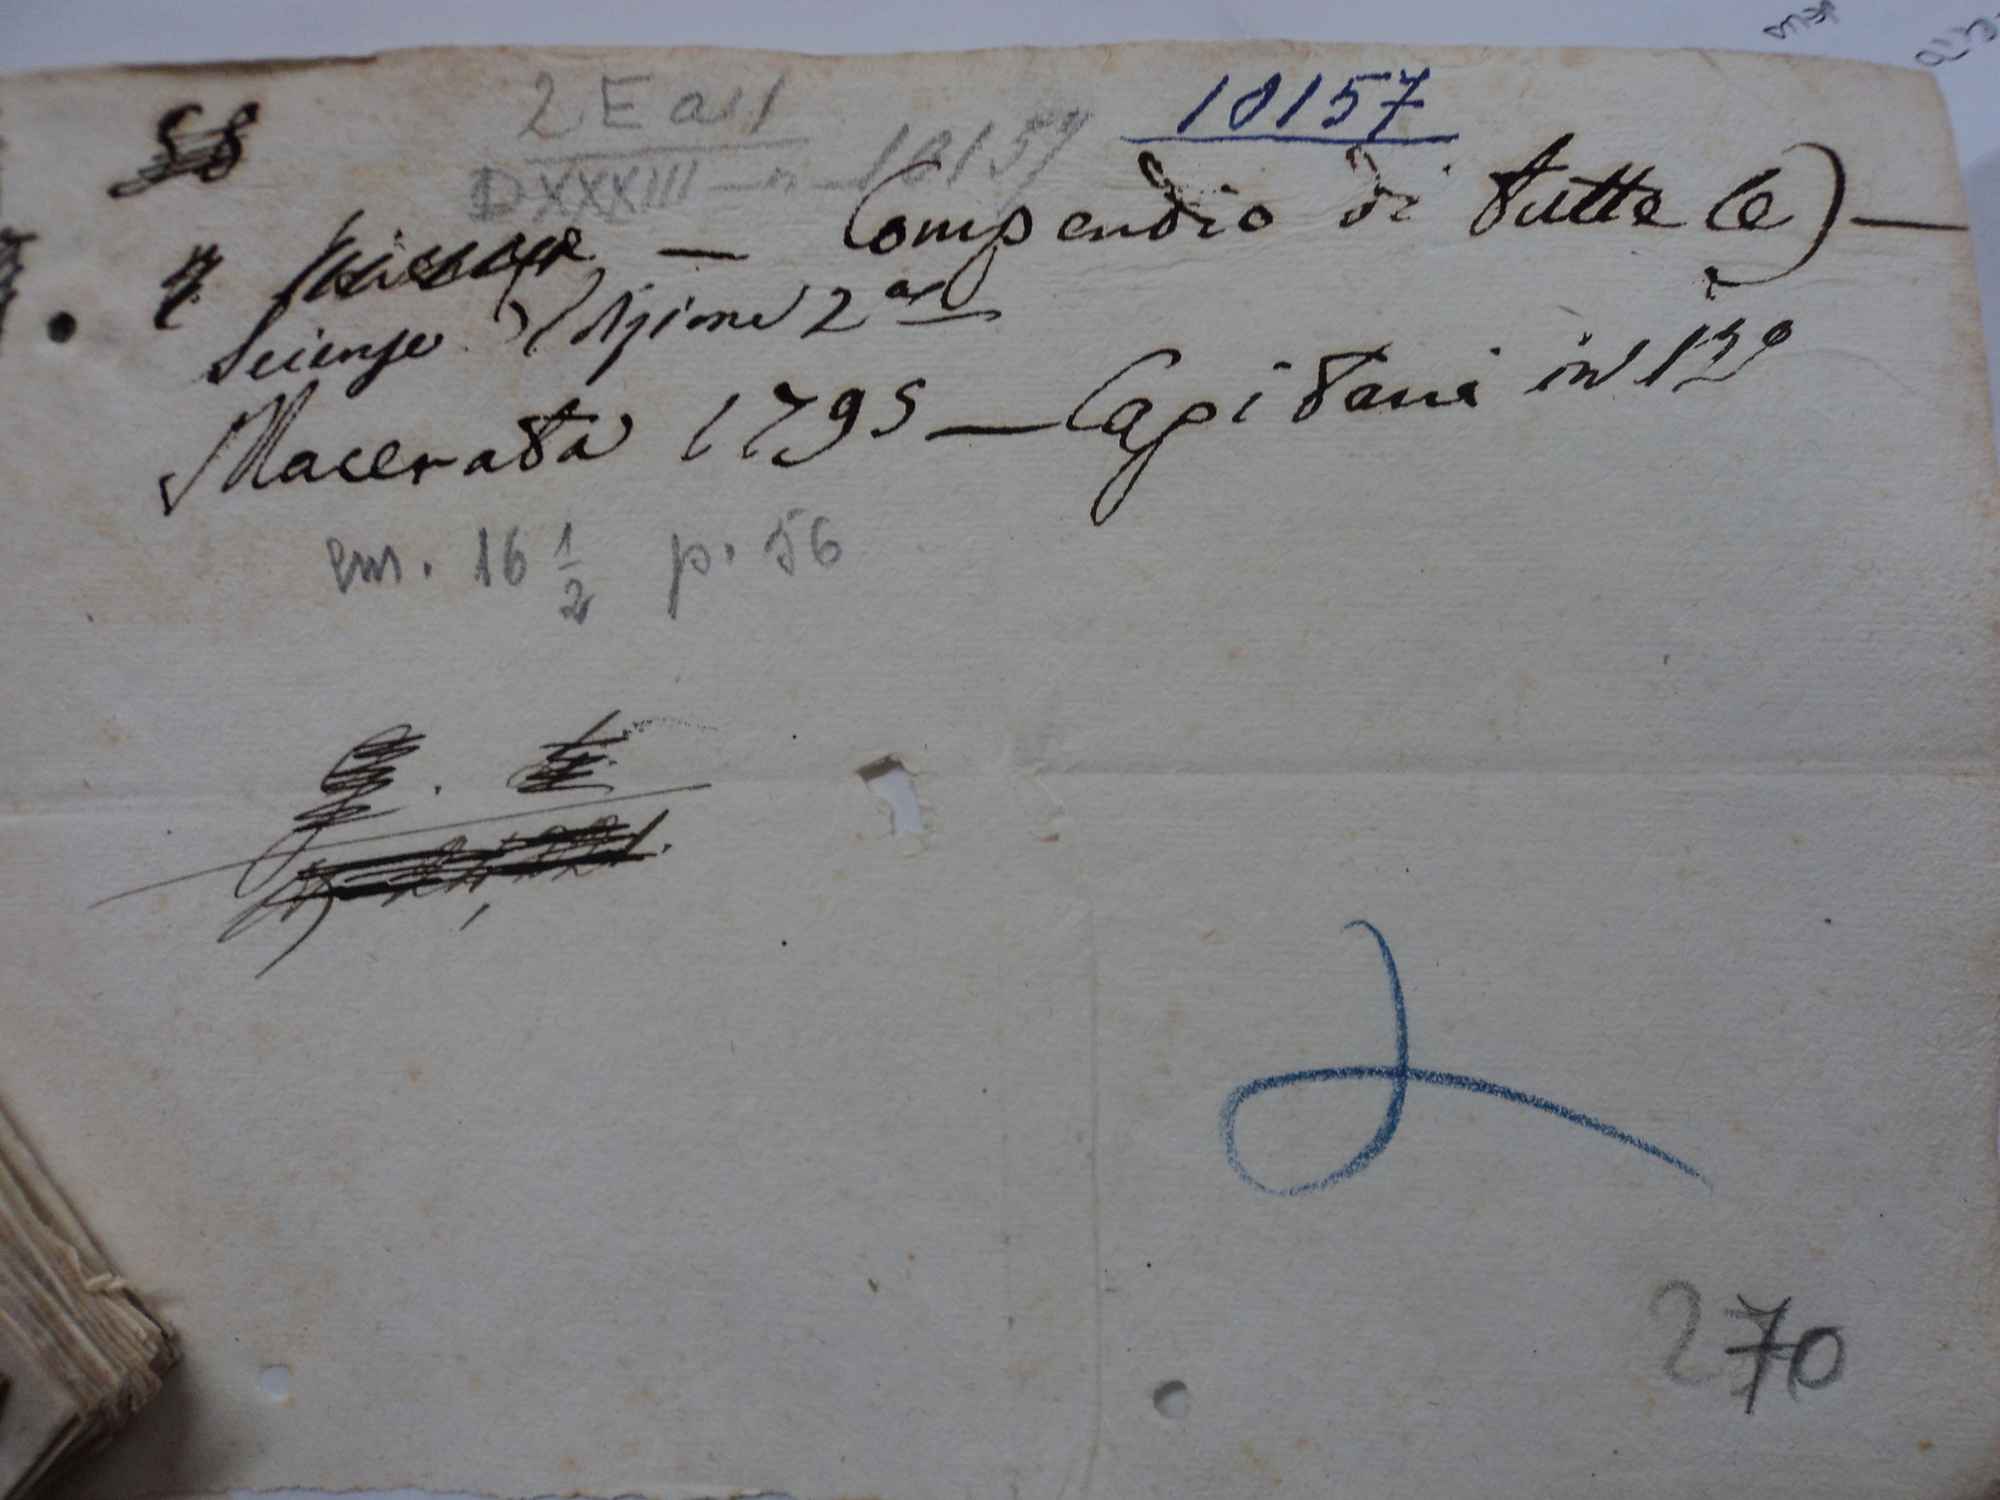 2 E a 11
10157
D XXXIII - n - 10157
— Compendio di tutte le) —
Scienze Edizione 2ª
Macerata 1795 — Capitani in 12º
cm. 16 1/2 p. 56
270